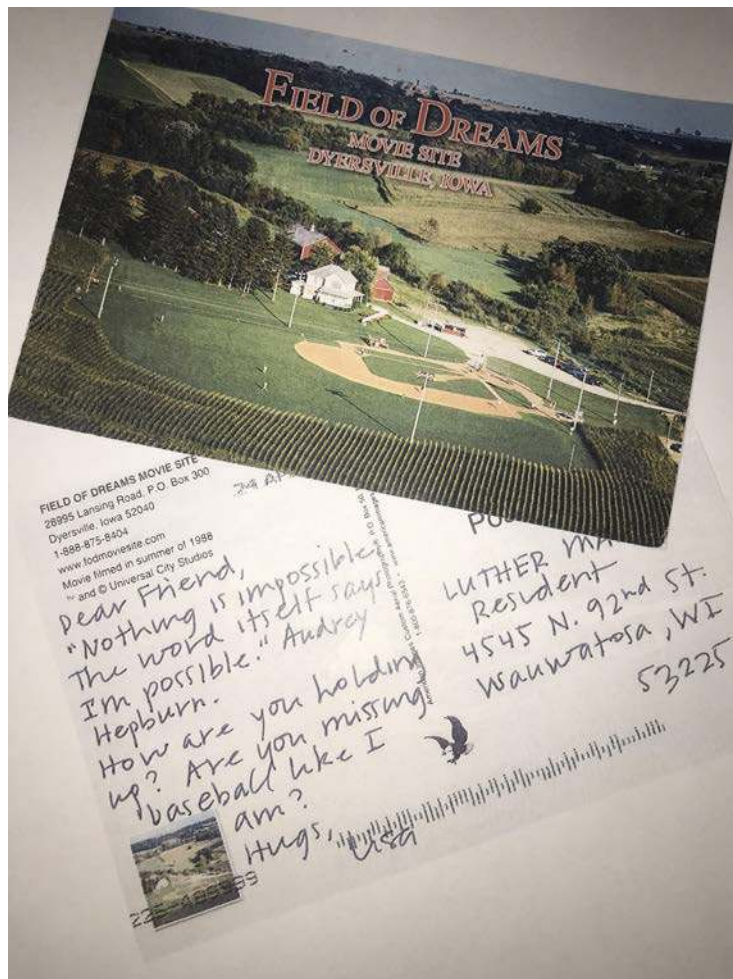 FIELD OF DREAMS
MOVIE SITE
DYERSVILLE, IOWA
FIELD OF DREAMS MOVIE SITE
28995 Lansing Road, P.O. Box 300
Dyersville, Iowa 52040
1-888-875-8404
www.fodmoviesite.com
Movie filmed in summer of 1988
™ and © Universal City Studios
Dear Friend,
"Nothing is impossible.
The word itself says
I'm possible." Audrey
Hepburn.
How are you holding
up? Are you missing
baseball like I
am?
Hugs,
Lisa
LUTHER MA
Resident
4545 N. 92nd St.
Wauwatosa, WI
53225